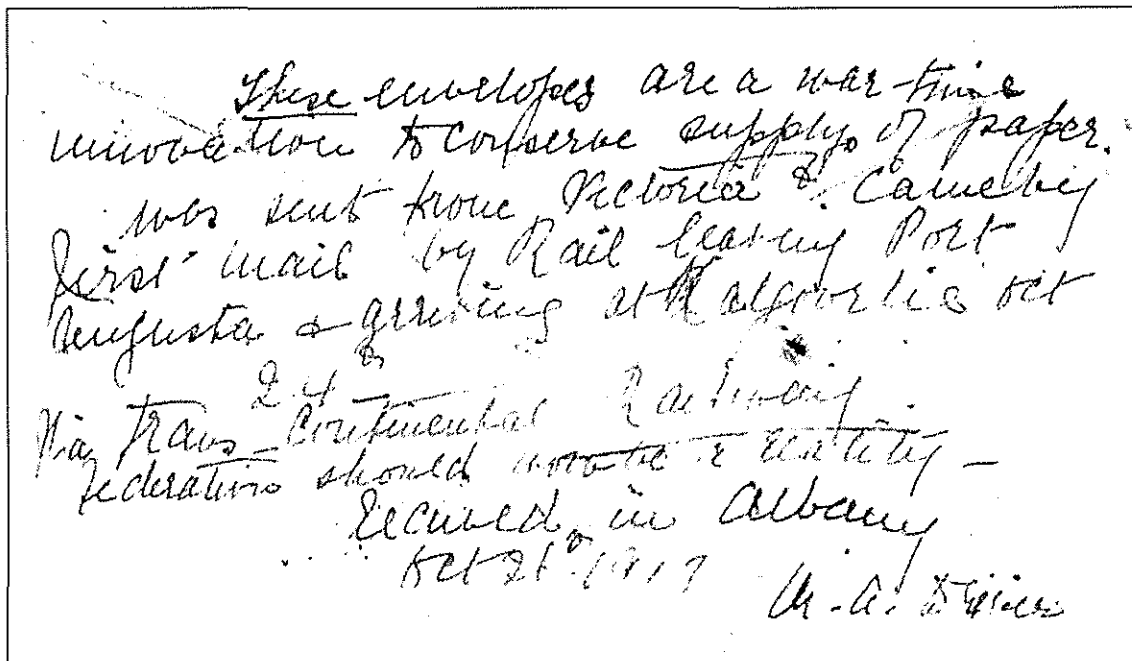 These envelopes are a war-time
innovation to conserve supply of paper.
was sent from Victoria & Came by
first mail by Rail leaving Port
Augusta & arriving at Kalgoorlie Oct
24th
Via Trans-Continental Railway.
Federation should now be a reality —
Received in Albany
Oct 26th 1917
M. A.